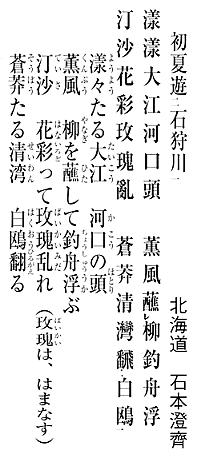 初夏遊二石狩川一
北海道 石本澄齊
漾漾大江河口頭 薫風蘸柳釣舟浮
汀沙花彩玫瑰亂 蒼莽清灣飜白鴎
漾々たる大江 河口の頭
薫風 柳を蘸して釣舟浮ぶ
汀沙 花彩って玫瑰乱れ
蒼莽たる清湾 白鴎翻る
(玫瑰は、はまなす)